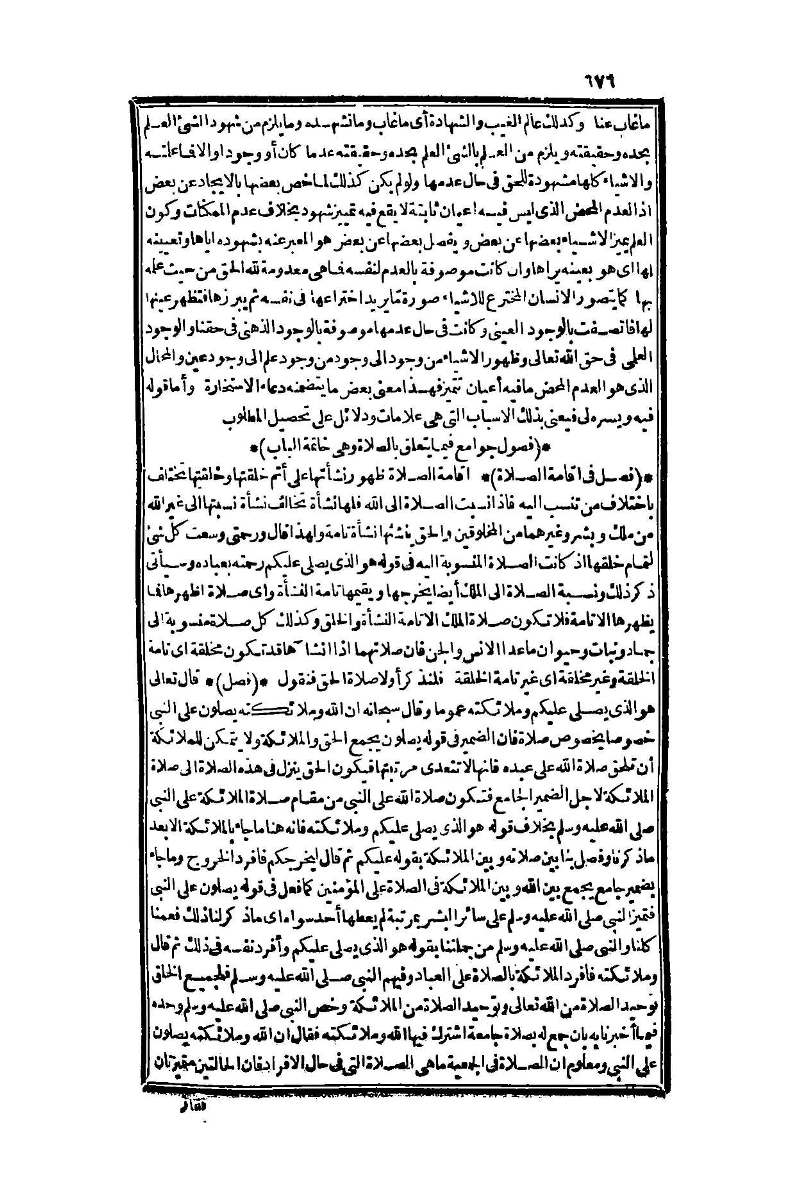 ٦٧٦
ما غاب عنا وكذلك عالم الغيب والشهادة أى ما غاب وما نشهده وما يلزم من شهود الشئ العلم
بحده وحقيقته ويلزم من العلم بالشئ العلم بحده وحقيقته عدما كان أو وجودا والا فما علمته
والاشياء كلها مشهودة للحق فى حال عدمها ولو لم يكن كذلك لما خص بعضها بالايجاد عن بعض
اذ العدم المحض الذى ليس فيه اعيان ثابتة لا يقع فيه تمييز شهود بخلاف عدم الممكنات وكون
العلم يميز الاشياء بعضها عن بعض ويفصل بعضها عن بعض هو المعبر عنه بشهوده اياها وتعيينه
لها اى هو بعينه يراها وان كانت موصوفة بالعدم لنفسه فما هى معدومة لله الحق من حيث علمه
بها كما يتصور الانسان المخترع للاشياء صورة ما يريد اختراعها فى نفسه ثم يبرزها فتظهر عينها
لها فاتصفت بالوجود العينى وكانت فى حال عدمها موصوفة بالوجود الذهنى فى حقنا والوجود
العلمى فى حق الله تعالى وظهور الاشياء من وجود الى وجود من وجود علم الى وجود عين والمحال
الذى هو العدم المحض ما فيه أعيان تتميز فهذا معنى بعض ما يتضمنه دعاء الاستخارة وأما قوله
فيه ويسره لى فيعنى بذلك الاسباب التى هى علامات ودلائل على تحصيل المطلوب
*(فصول جوامع فيما يتعلق بالصلاة وهى خاتمة الباب)*
*(فصل فى اقامة الصلاة)* اقامة الصلاة ظهور نشأتها على أتم خلقتها وخلقتها تختلف
باختلاف من تنسب اليه فاذا نسبت الصلاة الى الله فلها نشأة تخالف نشأة نسبتها الى غير الله
من ملك وبشر وغيرهما من المخلوقين والحق ينشئها نشأة تامة ولهذا قال ورحمتى وسعت كل شئ
لتمام خلقها اذ كانت الصلاة المنسوبة اليه فى قوله هو الذى يصلى عليكم رحمته بعباده وسيأتى
ذكر ذلك ونسبة الصلاة الى الملك أيضا يخرجها ويقيمها تامة النشأة واى صلاة اظهرها فما
يظهرها الا تامة فلا تكون صلاة الملك الا تامة النشأة والخلق وكذلك كل صلاة منسوبة الى
جماد ونبات وحيوان ما عدا الانس والجن فان صلاتهما اذا انشآها قد تكون مخلقة اى تامة
الخلقة وغير مخلقة اى غير تامة الخلقة فلنذكر أولا صلاة الحق فنقول *(فصل)* قال تعالى
هو الذى يصلى عليكم وملائكته عموما وقال سبحانه ان الله وملائكته يصلون على النبى
خصوصا بخصوص صلاة فان الضمير فى قوله يصلون يجمع الحق والملائكة ولا يتمكن للملائكة
أن تلحق صلاة الله على عبده فانها لا تتعدى مرتبتها فيكون الحق ينزل فى هذه الصلاة الى صلاة
الملائكة لاجل الضمير الجامع فتكون صلاة الله على النبى من مقام صلاة الملائكة على النبى
صلى الله عليه وسلم بخلاف قوله هو الذى يصلى عليكم وملائكته فانه هنا ما جاء بالملائكة الا بعد
ما ذكرنا وفصل بنا بين صلاته وبين الملائكة بقوله عليكم ثم قال ليخرجكم فافرد الخروج وما جاء
بضمير جامع يجمع بين الله وبين الملائكة فى الصلاة على المؤمنين كما فعل فى قوله يصلون على النبى
فتميز النبى صلى الله عليه وسلم على سائر البشر بمرتبة لم يعطها أحد سواه اى ما ذكر لنا ذلك فعمنا
كلنا والنبى صلى الله عليه وسلم من جملتنا بقوله هو الذى يصلى عليكم وأفرد نفسه فى ذلك ثم قال
وملائكته فافرد الملائكة بالصلاة على العباد وفيهم النبى صلى الله عليه وسلم فلجميع الخلق
توحيد الصلاة من الله تعالى وتوحيد الصلاة من الملائكة وخص النبى صلى الله عليه وسلم وحده
فيما أخبرنا به بان جمع له بصلاة جامعة اشترك فيها الله وملائكته فقال ان الله وملائكته يصلون
على النبى ومعلوم ان الصلاة فى الجمعية ما هى الصلاة التى فى حال الافراد فان الحالتين متميزتان